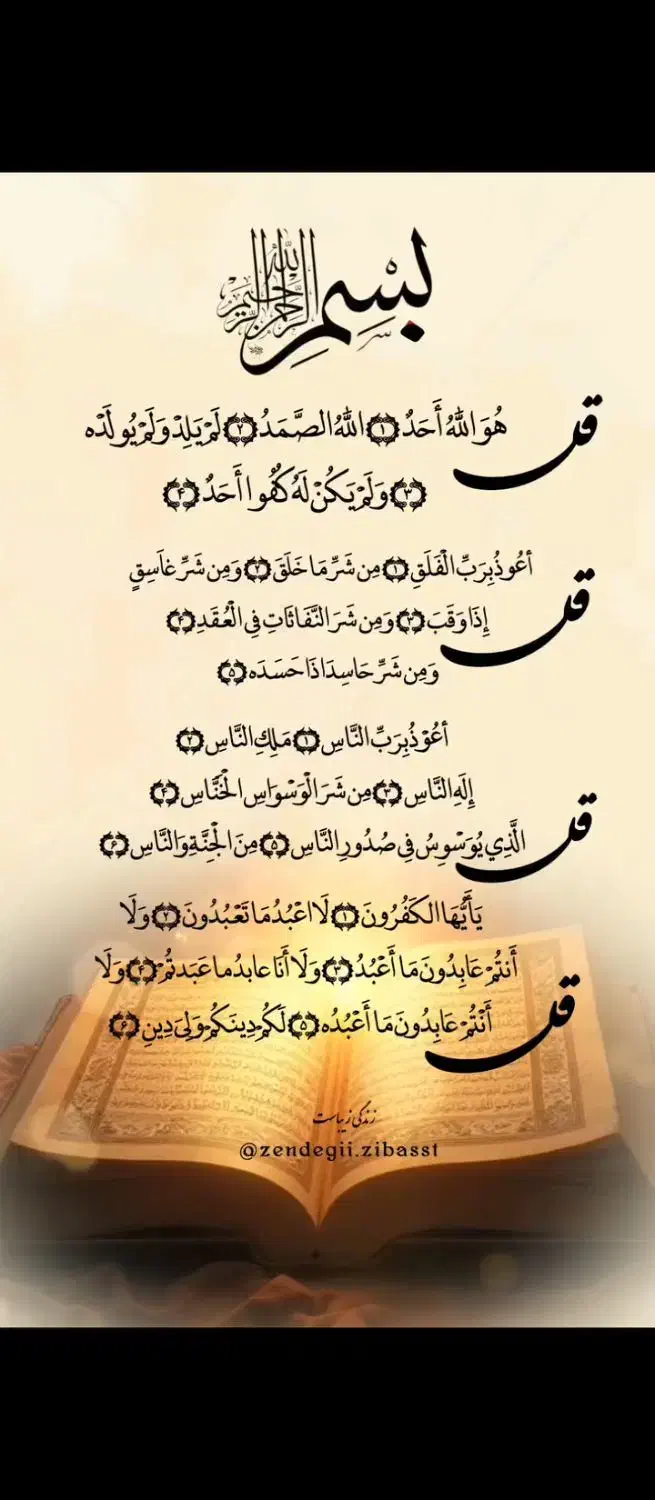 بِسْمِ اللهِ الرَّحْمنِ الرَّحِيمِ
قل هُوَ اللهُ أَحَدٌ ﴿١﴾ اللهُ الصَّمَدُ ﴿٢﴾ لَمْ يَلِدْ وَلَمْ يُولَدْه
﴿٣﴾ وَلَمْ يَكُنْ لَهُ كُفُوا أَحَدٌ ﴿۴﴾
قل أعُوذُ بِرَبِّ الْفَلَقِ ﴿١﴾ مِن شَرِّ مَا خَلَقَ ﴿٢﴾ وَمِن شَرِّ غاَسِقٍ
إِذَا وَقَبَ ﴿٣﴾ وَمِن شَرَ النَّفَاثَاتِ فِي الْعُقَدِ ﴿۴﴾
وَمِن شَرِّ حَاسِدَاذَا حَسَدَه ﴿۵﴾
قل أعُوْذُ بِرَبِّ النَّاسِ ﴿١﴾ مَلِكِ النَّاسِ ﴿٢﴾
إِلَهِ النَّاسِ ﴿٣﴾ مِن شَرَ الْوَسْوَاسِ الْخَنَّاسِ ﴿۴﴾
الَّذِي يُوَسْوِسُ فِي صُدُورِ النَّاسِ ﴿۵﴾ مِنَ الْجِنَّةِ وَالنَّاسِ ﴿۶﴾
قل يَأَيُّهَا الكَفُرُونَ ﴿١﴾ لَا اعْبُدُ مَا تَعْبُدُونَ ﴿٢﴾ وَلَا
أَنتُمْ عَابِدُونَ مَا أَعْبُدُ ﴿٣﴾ وَلَا أَنَا عابدُ ما عَبَدتُمْ ﴿۴﴾ وَلَا
أَنْتُمْ عَابِدُونَ مَا أَعْبُدُه ﴿۵﴾ لَكُمْ دِينَكُمْ وَلِيَ دِينِ ﴿۶﴾
زندگی زیباست
@zendegii.zibasst